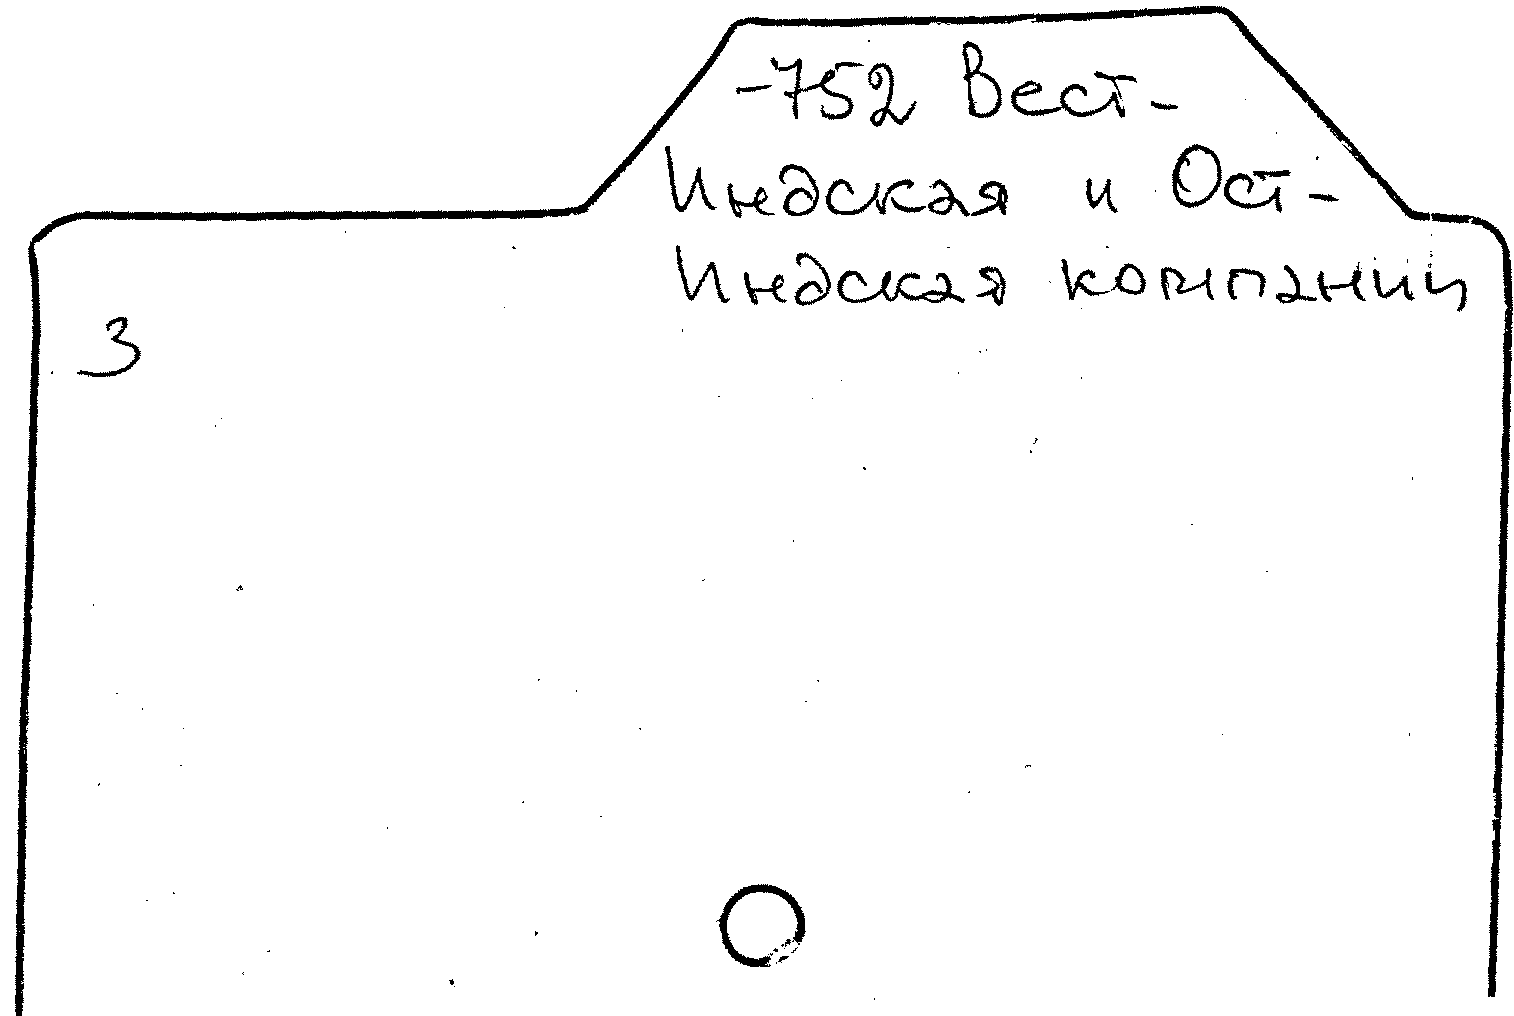 -752 Вест-
Индская и Ост-
Индская компании
3